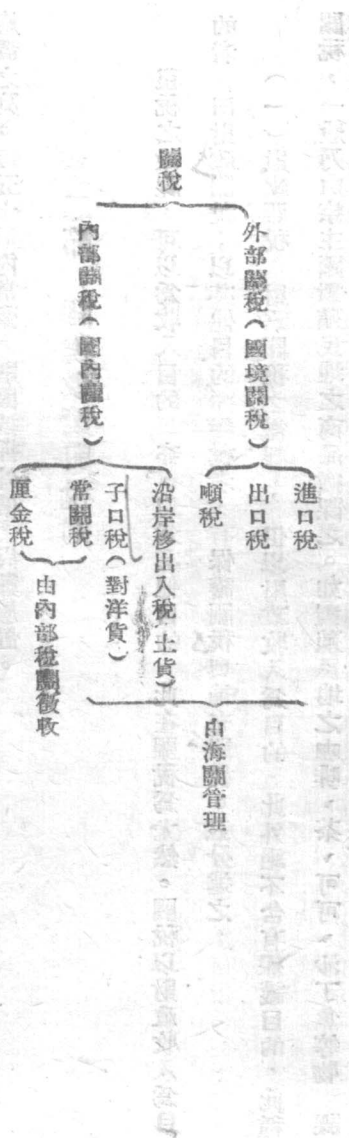 關稅
外部關稅（國境關稅）
進口稅
出口稅
噸稅
內部關稅（國內關稅）
沿岸移出入稅（土貨）
子口稅（對洋貨）
常關稅
厘金稅
由海關管理
由內部稅關徵收